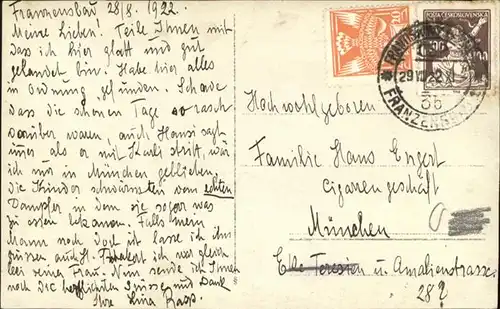 Franzensbad 28/8. 1922.
Meine Lieben! Teile Ihnen mit
Das ich hier glatt und gut
gelandet bin. Habe hier alles
in Ordnung gefunden. Schade
dass die schönen Tage so rasch
vorüber waren, auch Hansi sagt
immer als er mit Karli stritt, wär
ich nur in München geblieben,
die Kinder schwärmten vom echten
Dampfer in dem sie sogar was
zu essen bekamen. Falls mein
Mann noch dort ist lasse ich ihn
grüssen auch H. ich was gleich
bei seiner Frau. Nun sende ich Ihnen
noch die herzlichsten Grüsse und Dank
Ihre Lina Rapp.
POŠTA ČESKOSLOVENSKÁ
20
100
29 VIII 22 XI
3b
FRANZENSBAD
Hochwohlgeboren
Familie Hans Engest
Cigarrengeschäft
München
Ecke Theresien u. Amalienstrasse
28?